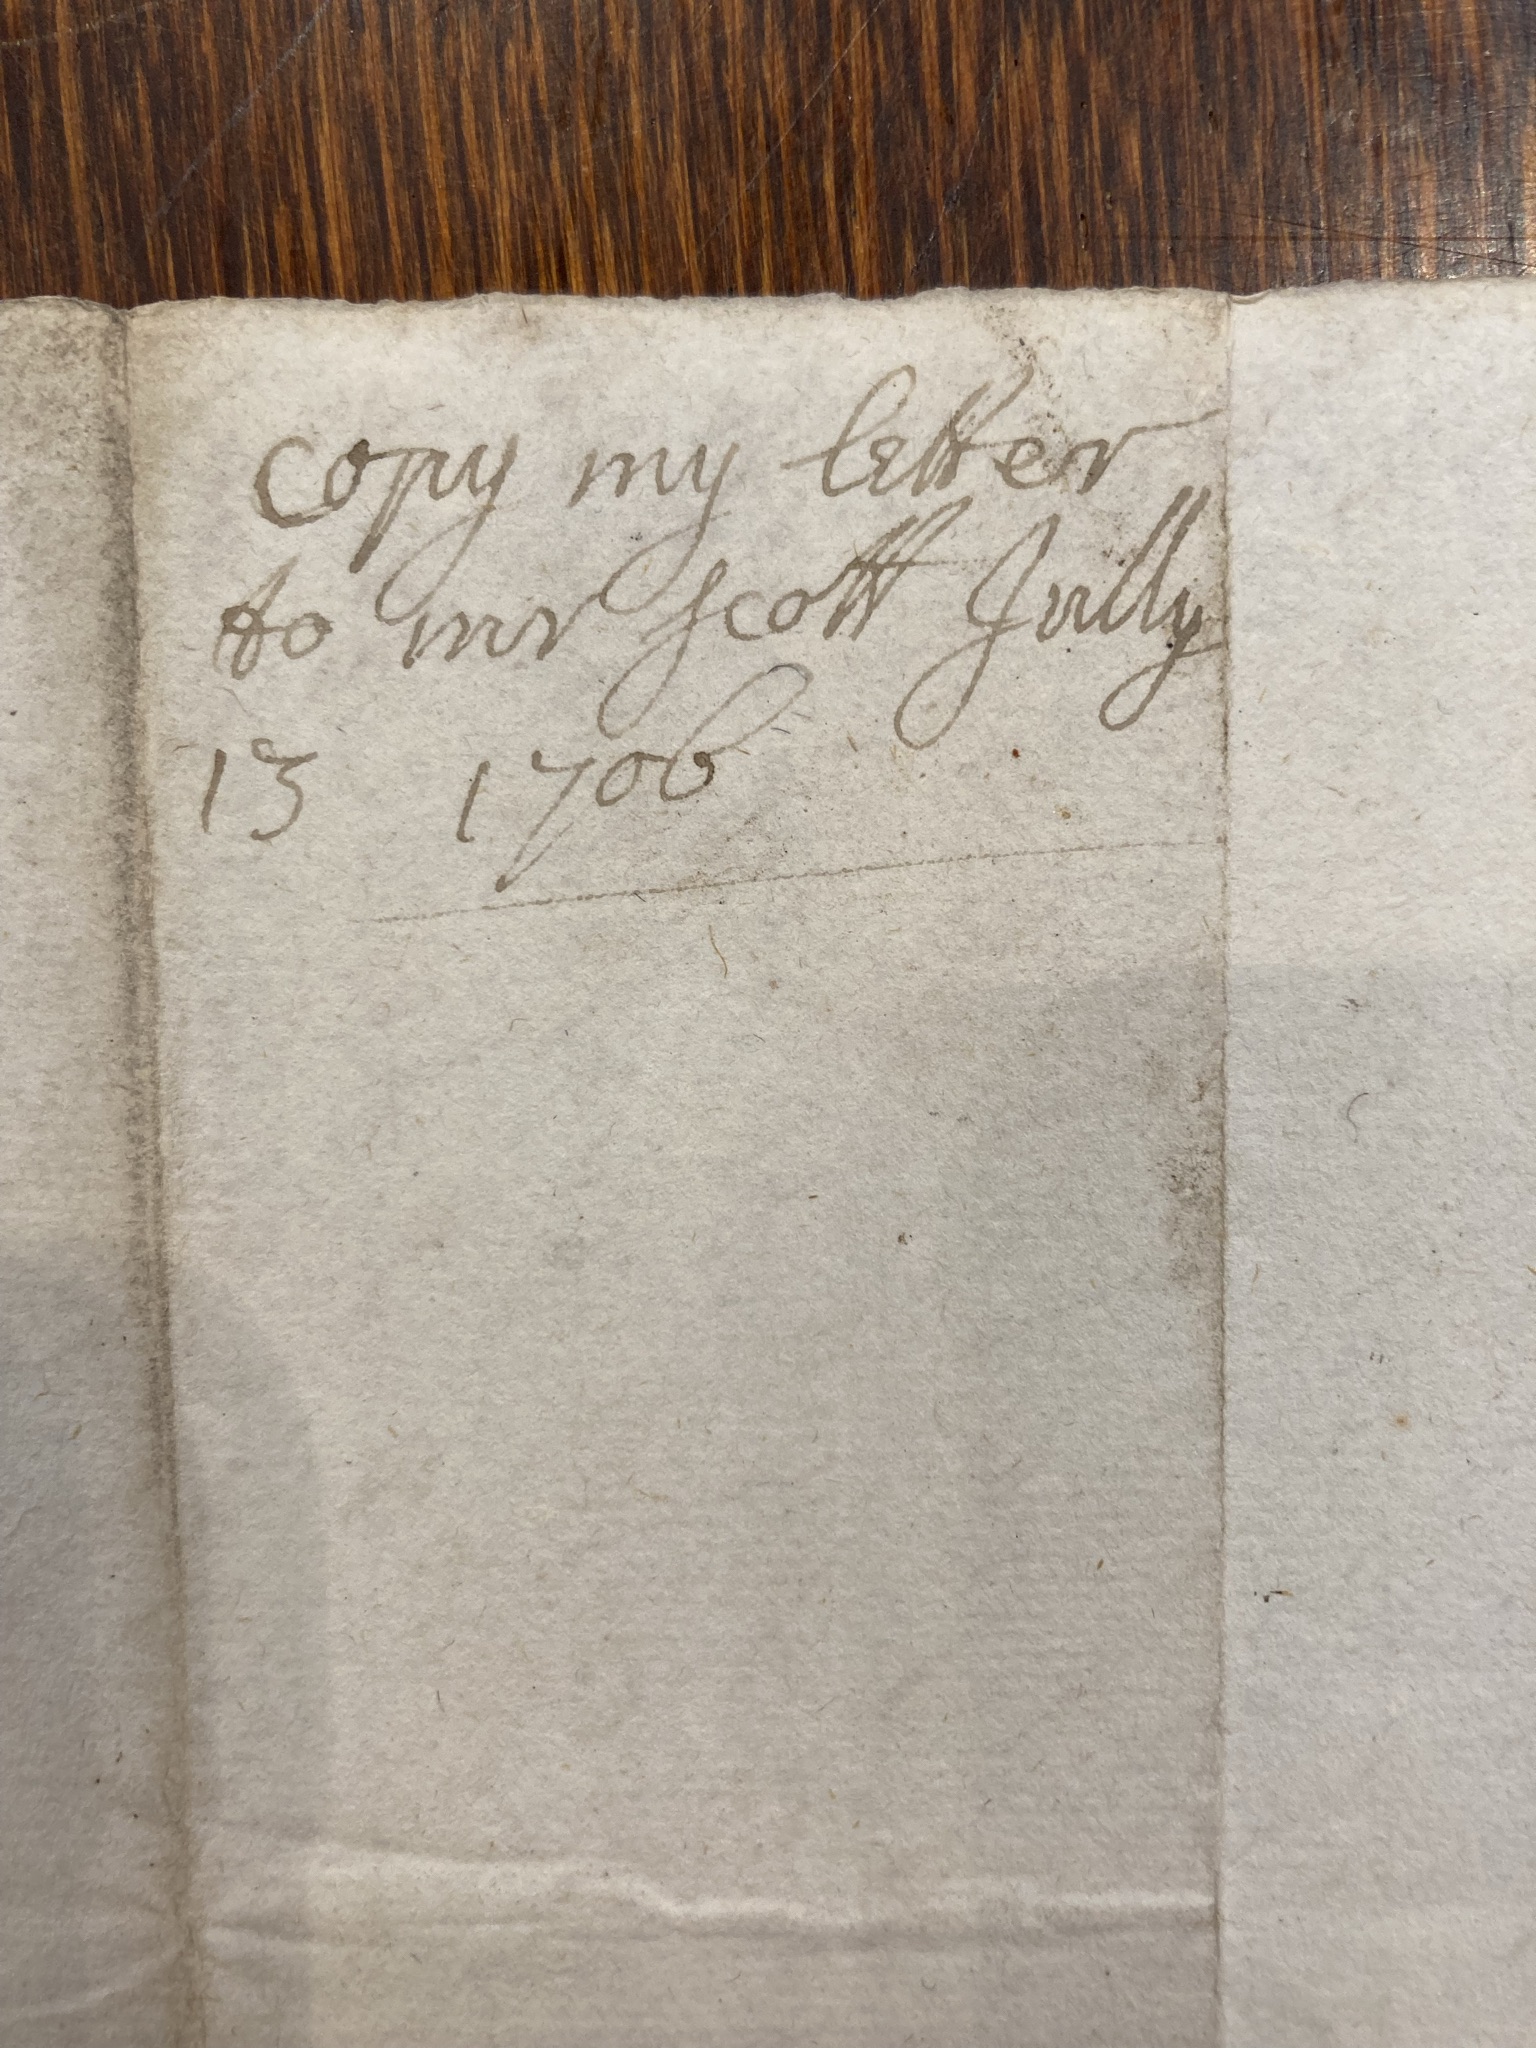 Copy my letter
to mr Scott Jully
13 1706